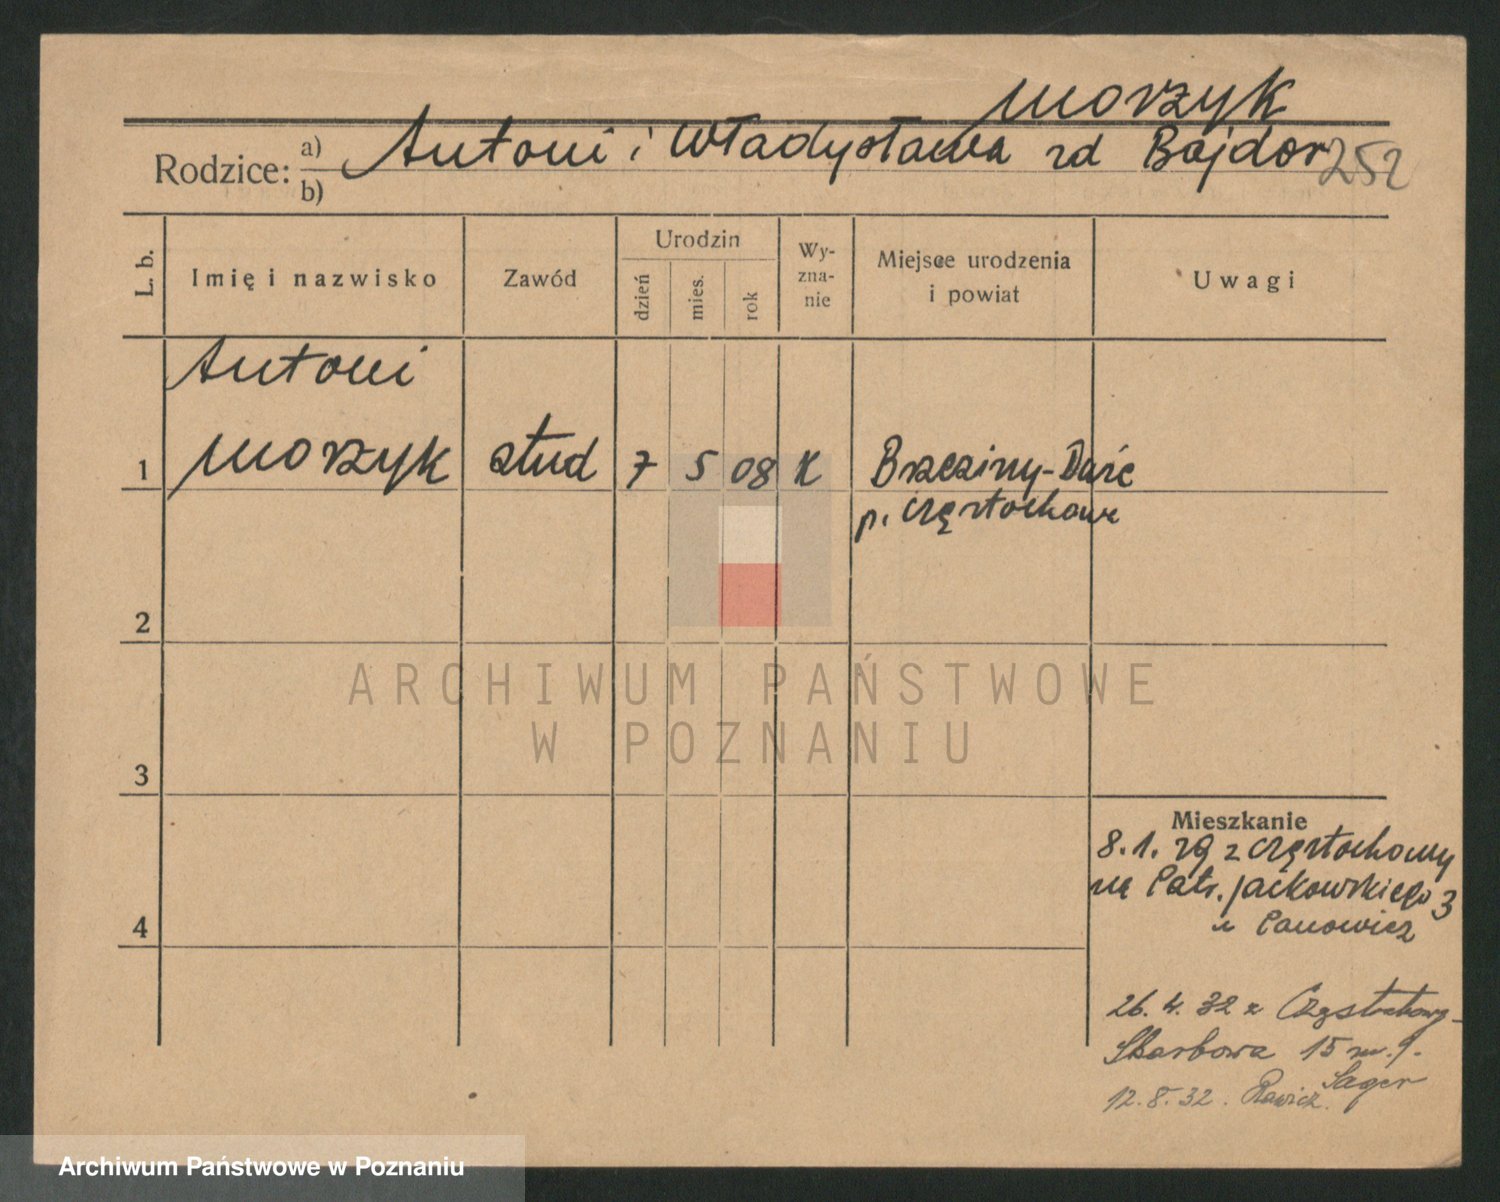 Morzyk
Rodzice: a) b) Antoni i Władysława zd Bajdor 252
L. b. Imię i nazwisko Zawód Urodzin dzień mies. rok Wy-zna-nie Miejsce urodzenia i powiat Uwagi
Antoni
1 Morzyk stud 7 5 08 K Brzeziny-Duże
p. Częstochowa
2
ARCHIWUM PAŃSTWOWE
W POZNANIU
3
Mieszkanie
8.1.29 z Częstochowy
na Patr. Jackowskiego 3
4
26.4.32 z Częstochowy
Skarbowa 15 m.9.
Sager
12.8.32. Rawicz.
Archiwum Państwowe w Poznaniu